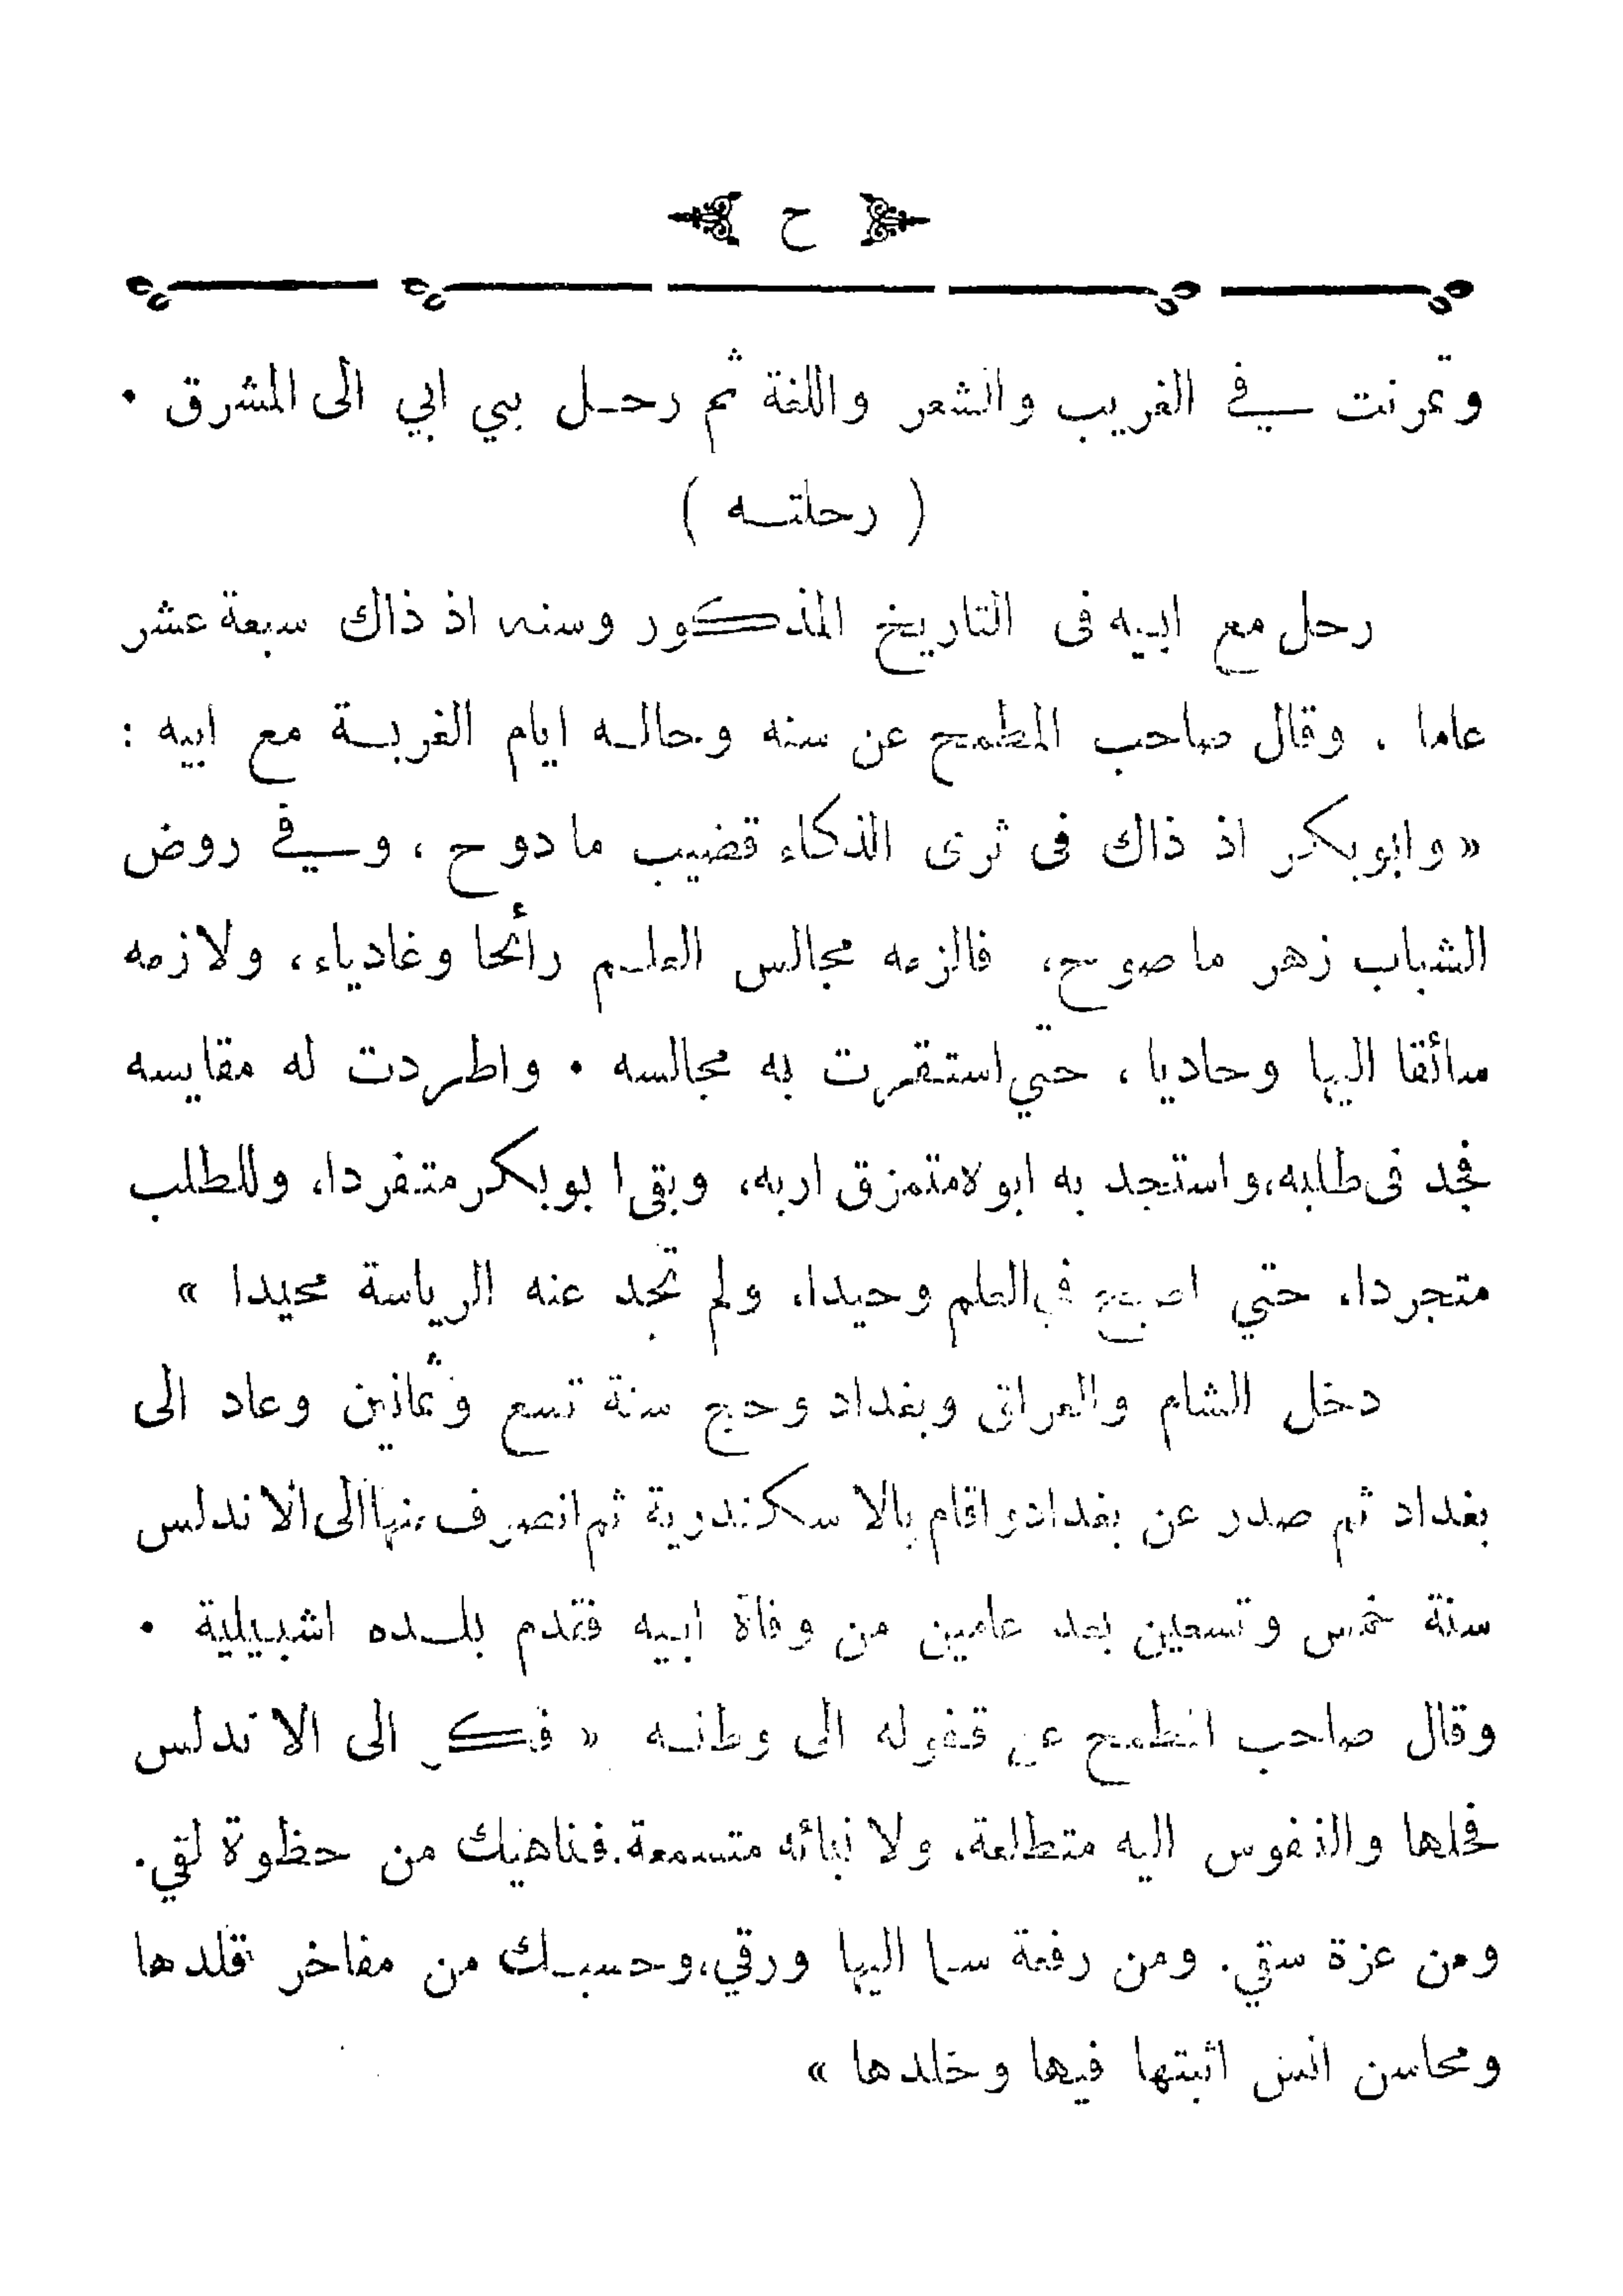 ح
وتمرنت في الغريب والشعر واللغة ثم رحل بي ابي الى المشرق .
( رحلته )
رحل مع ابيه فى التاريخ المذكور وسنه اذ ذاك سبعة عشر
عاما . وقال صاحب المطمح عن سنه وحاله ايام الغربة مع ابيه :
« وابوبكر اذ ذاك فى ثرى الذكاء قضيب ما دوح ، وفي روض
الشباب زهر ما صوح، فالزمه مجالس العلم رأئحا وغادياء، ولازمه
سائقا اليها وحاديا ، حتي استقرت به مجالسه . واطردت له مقايسه
فجد فى طلبه،واستجد به ابوه متمزق اربه، وبقى ابوبكر متفردا، وللطلب
متجردا، حتي اصبح في العلم وحيدا، ولم تجد عنه الرياسة محيدا »
دخل الشام والعراق وبغداد وحج سنة تسع وثمانين وعاد الى
بغداد ثم صدر عن بغداد واقام بالاسكندرية ثم انصرف منها الى الاندلس
سنة خمس وتسعين بعد عامين من وفاة ابيه فقدم بلده اشبيلية .
وقال صاحب المطمح عن قفوله الى وطنه « فكر الى الاندلس
فحلها والنفوس اليه متطلعة، ولا نبائه متسمعة.فناهيك من حظوة لقي.
ومن عزة سقي. ومن رفعة سما اليها ورقي،وحسبك من مفاخر قلدها
ومحاسن انس اثبتها فيها وخلدها »